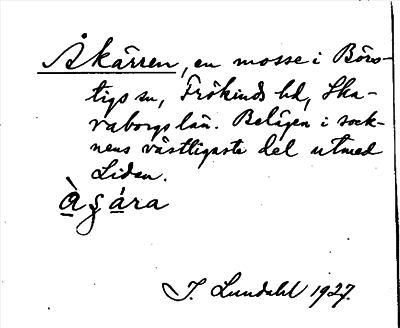 Åkärren, en mosse i Börs-
tigs sn, Frökinds hd, Ska-
raborgs län. Belägen i sock-
nens västligaste del utmed
Lidan.
I. Lundahl 1927.